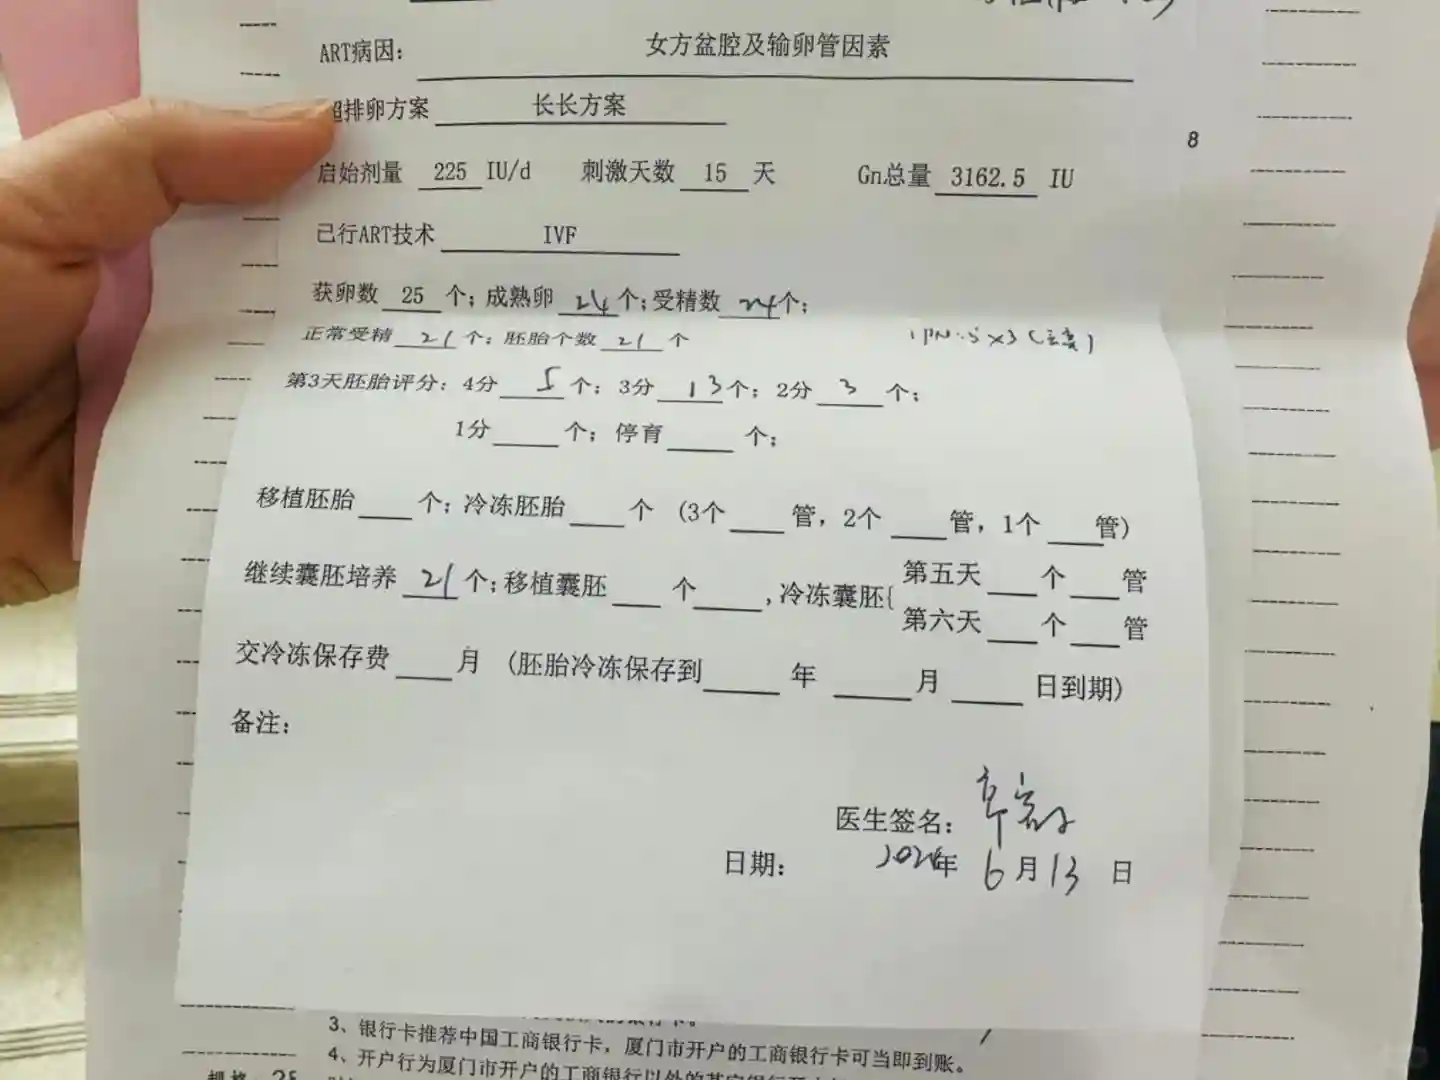 ART病因： 女方盆腔及输卵管因素
超排卵方案 长长方案
8
启始剂量 225 IU/d 刺激天数 15 天 Gn总量 3162.5 IU
已行ART技术 IVF
获卵数 25 个；成熟卵 24 个；受精数 24 个；
正常受精 21 个；胚胎个数 21 个
第3天胚胎评分：4分 5 个；3分 13 个；2分 3 个；
1分 个；停育 个；
移植胚胎 个；冷冻胚胎 个 (3个 管，2个 管，1个 管)
继续囊胚培养 21 个；移植囊胚 个 ,冷冻囊胚{
第五天 个 管
第六天 个 管
交冷冻保存费 月 (胚胎冷冻保存到 年 月 日到期)
备注：
医生签名：
日期： 2024年 6月13 日
3、银行卡推荐中国工商银行卡，厦门市开户的工商银行卡可当即到账。
4、开户行为厦门市开户的工商银行以外的其它银行